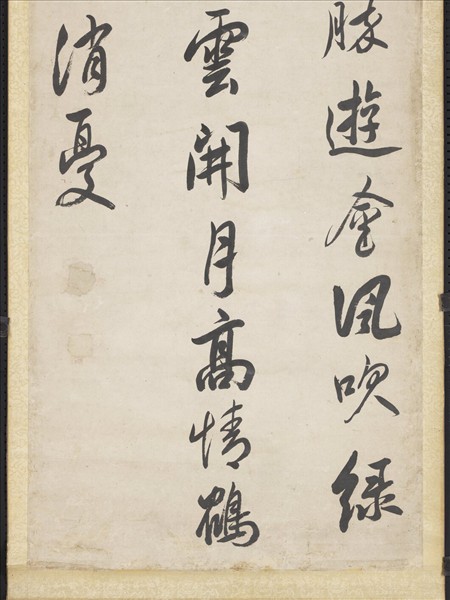 勝遊會風吹綠
雲開月高情鶴
消憂